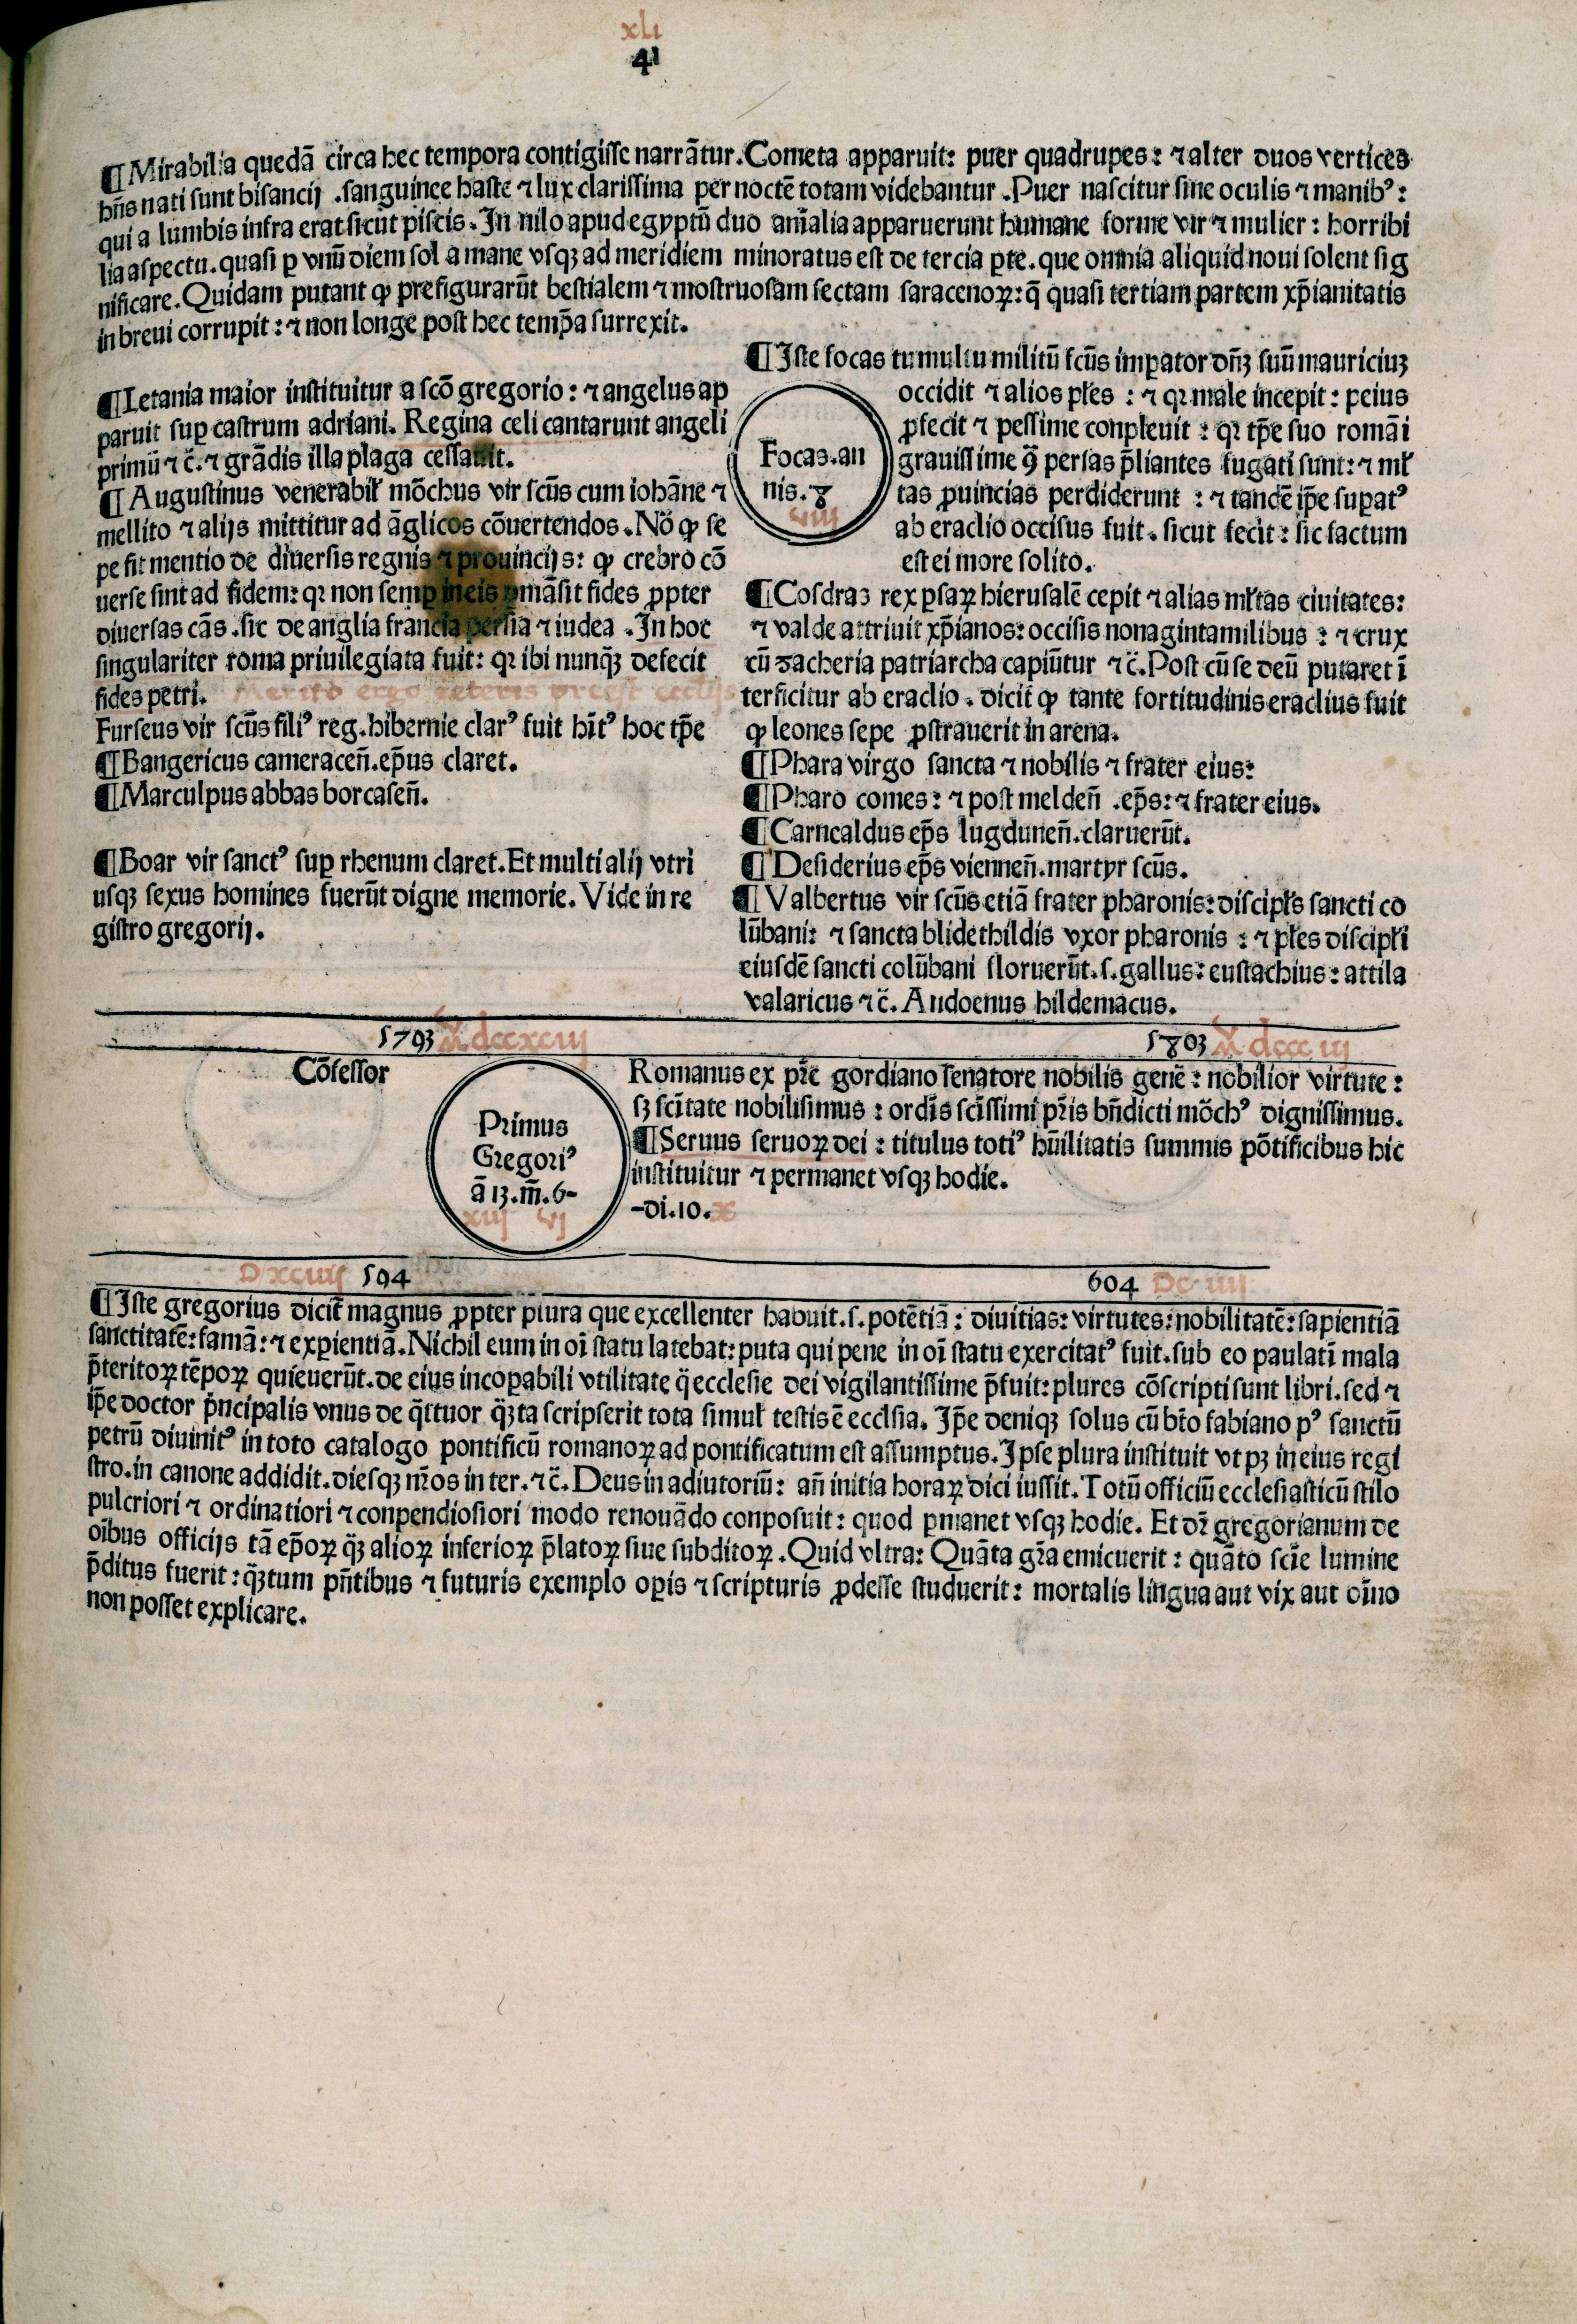 xli
41
¶Mirabilia quedã circa hec tempora contigisse narrãtur. Cometa apparuit: puer quadrupes: ⁊ alter duos vertices
hñs nati sunt bisancij .sanguinee haste ⁊ lux clarissima per noctẽ totam videbantur .Puer nascitur sine oculis ⁊ manibꝰ:
qui a lumbis infra erat sicut piscis. In nilo apud egyptũ duo aĩalia apparuerunt humane forme vir ⁊ mulier: horribi
lia aspectu. quasi ꝑ vnũ diem sol a mane vsqꝫ ad meridiem minoratus est de tercia ꝑte. que omnia aliquid noui solent sig
nificare. Quidam putant ꝙ prefigurarũt bestialem ⁊ mostruosam sectam saracenoꝝ: q̃ quasi tertiam partem xp̃ianitatis
in breui corrupit: ⁊ non longe post hec temp̃a surrexit.
¶Letania maior instituitur a scõ gregorio: ⁊ angelus ap
paruit suꝑ castrum adriani. Regina celi cantarunt angeli
primũ ⁊ c̃. ⁊ grãdis illa plaga cessauit.
¶Augustinus venerabił mõchus vir scũs cum iohãne ⁊
mellito ⁊ alijs mittitur ad ãglicos cõuertendos. Nõ ꝙ se
pe fit mentio de diuersis regnis ⁊ prouincijs: ꝙ crebro cõ
uerse sint ad fidem: qꝛ non semꝑ in eis ꝑmãsit fides ꝓpter
diuersas cãs. sic de anglia francia persia ⁊ iudea .In hoc
singulariter roma priuilegiata fuit: qꝛ ibi nunqꝫ defecit
fides petri.
Furseus vir scũs filiꝰ reg. hibernie clarꝰ fuit hĩtꝰ hoc tꝑe
¶Bangericus cameraceñ. ep̃us claret.
¶Marculpus abbas borcaseñ.
¶Boar vir sanctꝰ suꝑ rhenum claret. Et multi alij vtri
usqꝫ sexus homines fuerũt digne memorie. Vide in re
gistro gregorij.
¶Iste focas tumultu militũ fcũs imꝑator dñꝫ suũ mauriciuꝫ
occidit ⁊ alios płes : ⁊ qꝛ male incepit: peius
ꝓfecit ⁊ pessime conpleuit : qꝛ tꝑe suo romãi
grauissime ꝯ persas p̃liantes fugati sunt: ⁊ mł
tas ꝓuincias perdiderunt : ⁊ tandẽ ip̃e suꝑatꝰ
ab eraclio occisus fuit. sicut fecit: sic factum
est ei more solito.
Focas. an
nis. 8
viij
¶Cosdras rex ꝑsaꝝ hierusalẽ cepit ⁊ alias młtas ciuitates:
⁊ valde attriuit xp̃ianos: occisis nonagintamilibus : ⁊ crux
cũ zacheria patriarcha capiũtur ⁊ c̃. Post cũ se deũ putaret ĩ
terficitur ab eraclio. dicit̃ ꝙ tante fortitudinis eraclius fuit
ꝙ leones sepe ꝓstrauerit in arena.
¶Phara virgo sancta ⁊ nobilis ⁊ frater eius:
¶Pharo comes: ⁊ post meldeñ .ep̃s: ⁊ frater eius.
¶Carnealdus ep̃s lugduneñ. claruerũt.
¶Desiderius ep̃s vienneñ. martyr scũs.
¶Valbertus vir scũs etiã frater pharonis: discipłs sancti co
lũbani: ⁊ sancta blidethildis vxor pharonis : ⁊ płes discipłi
eiusdẽ sancti colũbani floruerũt. s. gallus: eustachius: attila
valaricus ⁊ c̃. Andoenus hildemacus.
5793 dccxciij 5803 dccc iij
Cõfessor
Primus
Gregoriꝰ
ã 13. m̃. 6-
xiij vj
Romanus ex p̃re gordiano senatore nobilis genẽ : nobilior virtute :
sꝫ scĩtate nobilisimus : ordĩs scĩssimi p̃ris bñdicti mõchꝰ dignissimus.
¶Seruus seruoꝝ dei : titulus totiꝰ hũilitatis summis põtificibus hic
instituitur ⁊ permanet vsqꝫ hodie.
-di. 10. x
D xciiij 594 604 Dc iiij
¶Iste gregorius dicit̃ magnus ꝓpter plura que excellenter habuit. s. potẽtiã : diuitias: virtutes: nobilitatẽ: sapientiã
sanctitatẽ: famã: ⁊ exꝑientiã. Nichil eum in oĩ statu latebat: puta qui pene in oĩ statu exercitatꝰ fuit. sub eo paulatĩ mala
p̃teritoꝝ tẽpoꝝ quieuerũt. de eius incoꝑabili vtilitate q̃ ecclesie dei vigilantissime p̃fuit: plures cõscripti sunt libri. sed ⁊
ip̃e doctor p̃ncipalis vnus de q̃ttuor q̃ꝫ ta scripserit tota simuł testis ẽ ecclsia. Ip̃e deniqꝫ solus cũ bt̃o fabiano pꝰ sanctũ
petrũ diuinitꝰ in toto catalogo pontificũ romanoꝝ ad pontificatum est assumptus. Ipse plura instituit vt pꝫ in eius regi
stro. in canone addidit. diesqꝫ nr̃os in ter. ⁊ c̃. Deus in adiutoriũ: añ initia horaꝝ dici iussit. Totũ officiũ ecclesiasticũ stilo
pulcriori ⁊ ordinatiori ⁊ conpendiosiori modo renouãdo conposuit: quod ꝑmanet vsqꝫ hodie. Et dr̃ gregorianum de
oĩbus officijs tã ep̃oꝝ q̃ꝫ alioꝝ inferioꝝ p̃latoꝝ siue subditoꝝ .Quid vltra: Quãta gr̃a emicuerit : quãto scĩe lumine
p̃ditus fuerit : q̃ꝫtum pñtibus ⁊ futuris exemplo oꝑis ⁊ scripturis ꝓdesse studuerit : mortalis lingua aut vix aut oĩno
non posset explicare.